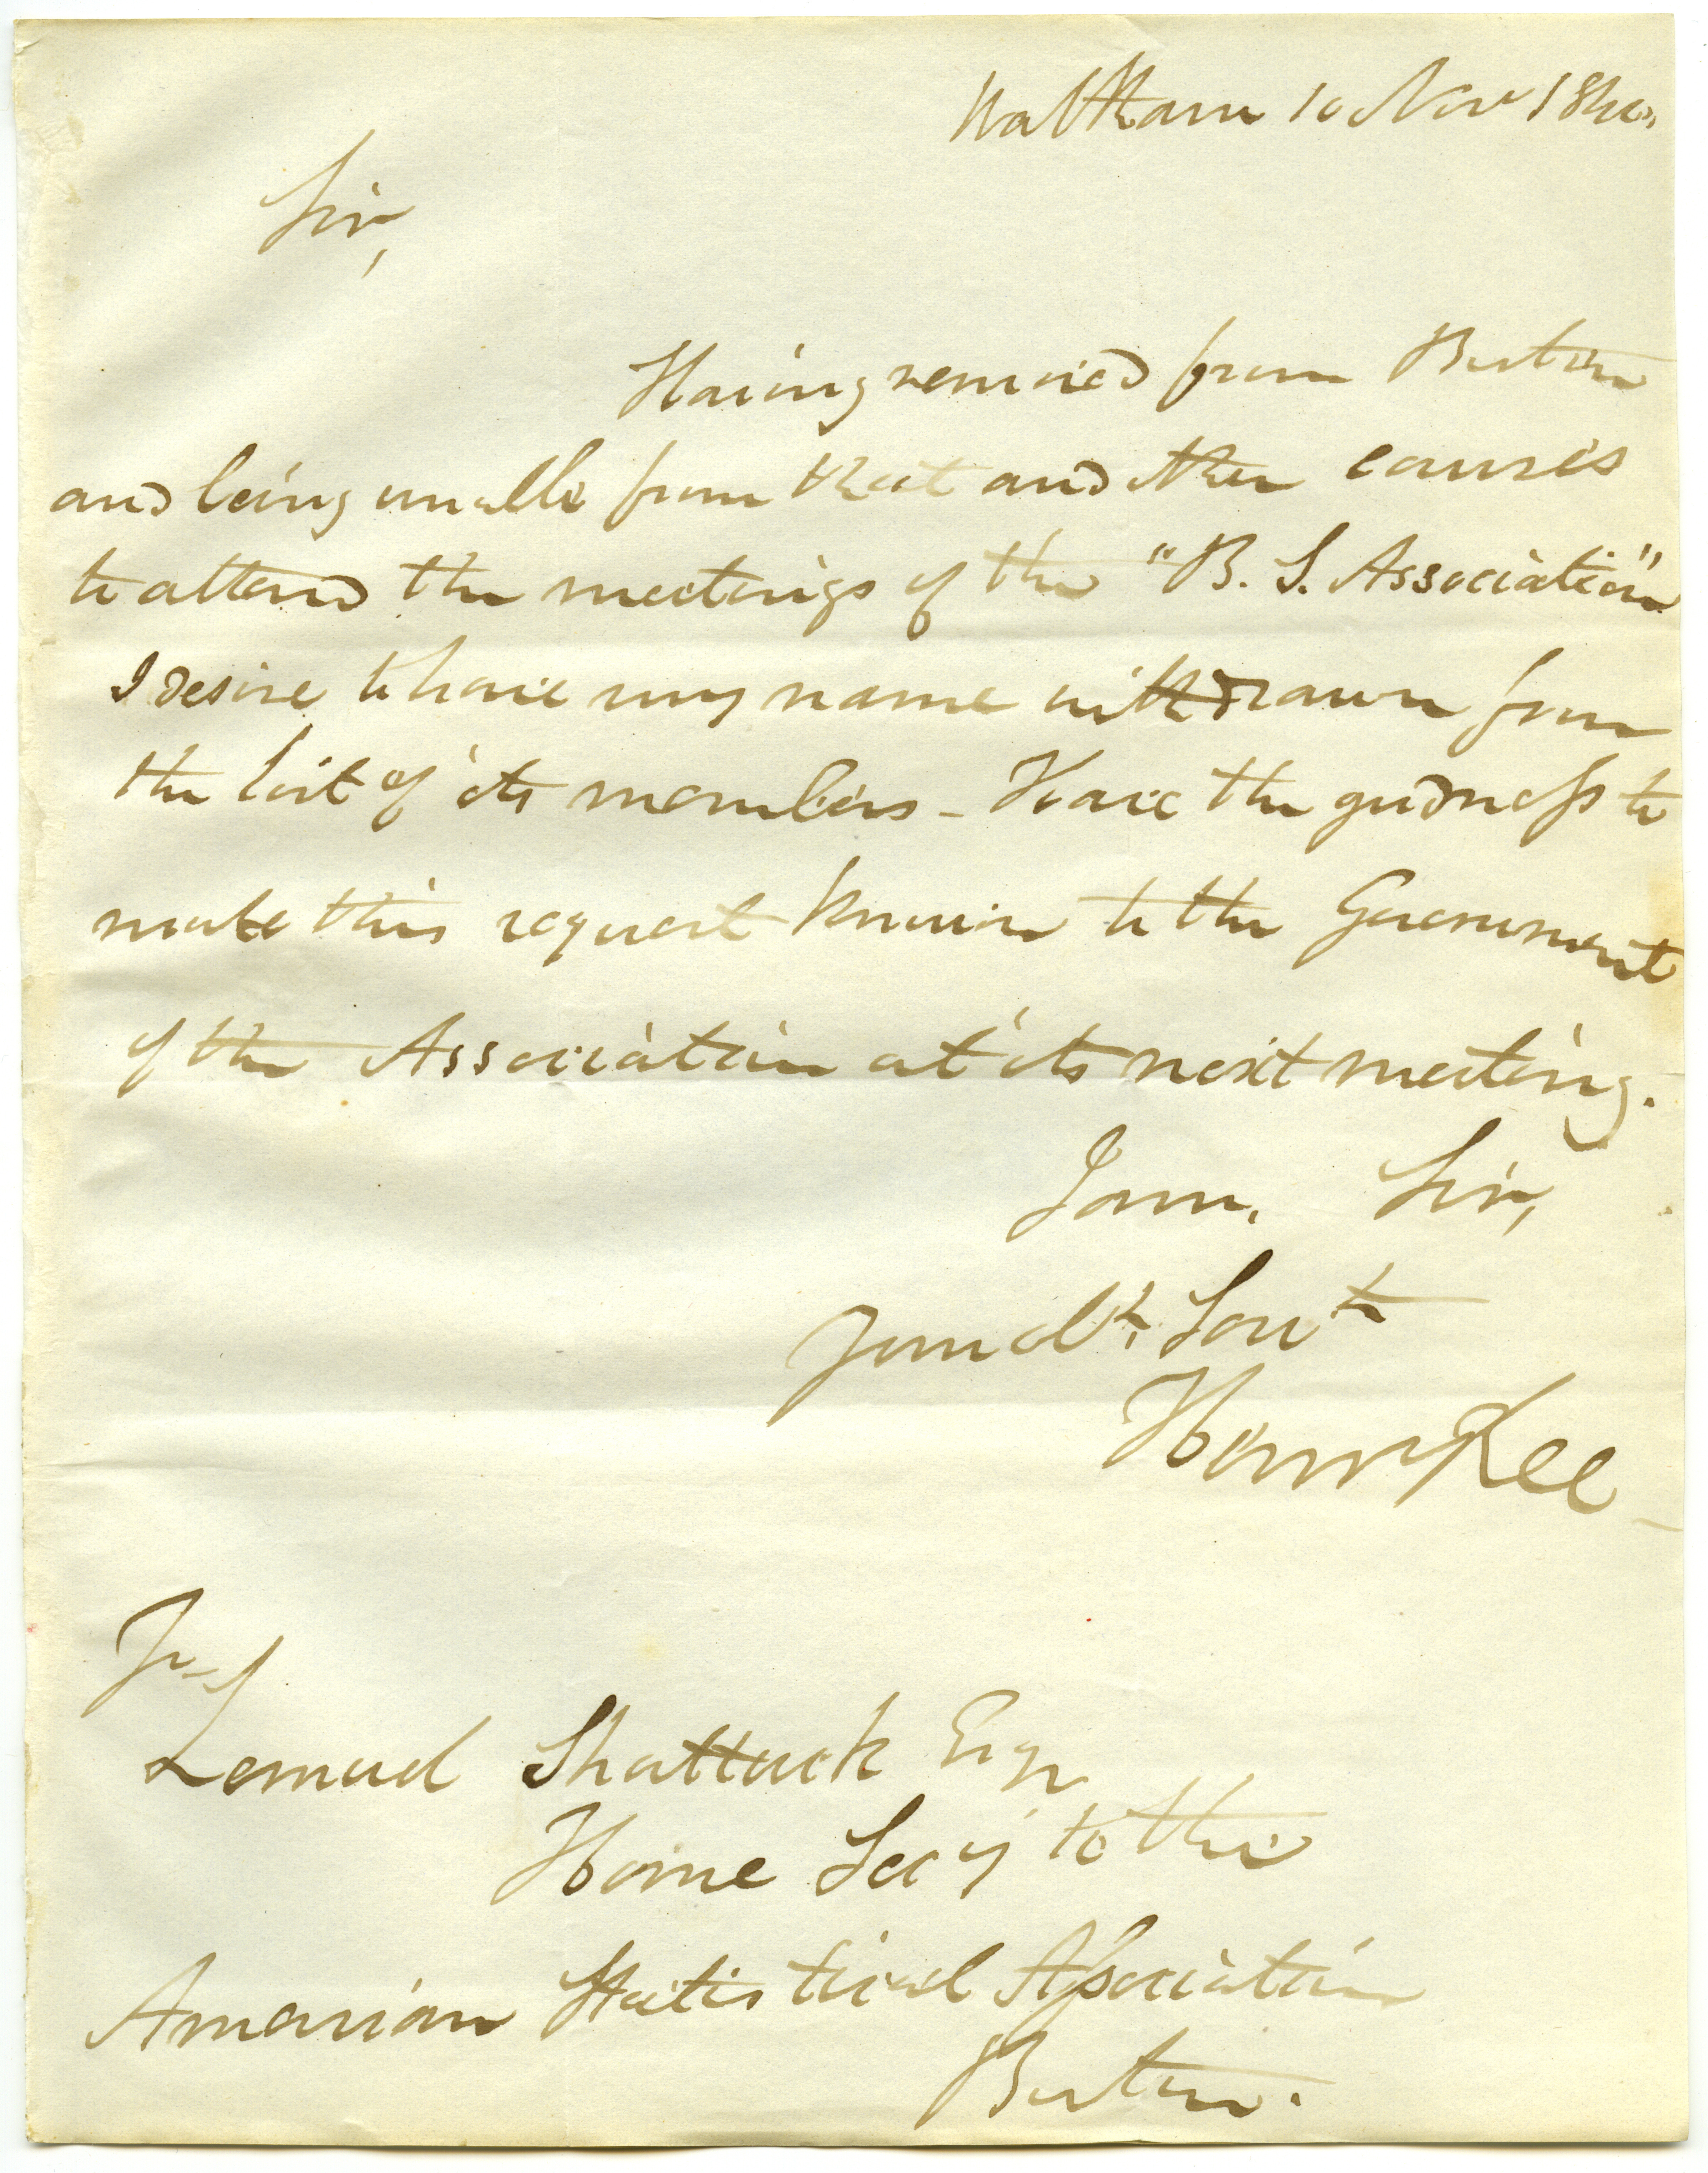 Waltham 10 Nov 1840,
Sir,
Having removed from Boston
and being unable from that and other causes
to attend the meetings of the "B. S. Association"
I desire to have my name withdrawn from
the list of its members - Have the goodness to
make this request known to the Government
of the Association at its next meeting.
I am, Sir,
Your obt. Servt
Henry Lee
To
Lemuel Shattuck Esqr
Home Secy to the
American Statistical Association
Boston.